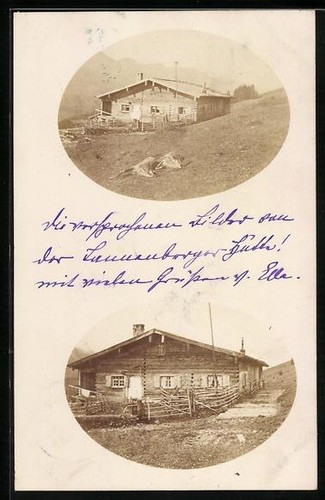 Die versprochenen Bilder von
der Tannenberger Hütte!
mit vielen Grüßen v. Elle.